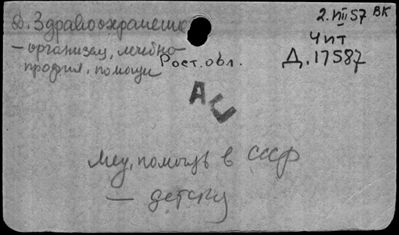 Д. Здравоохранение
2.VIII 57 ВК
– организац, лечебно
профил. помощи
Рост. обл.
Чит
Д.17587
АС
Мед. помощь в СССР
– детску